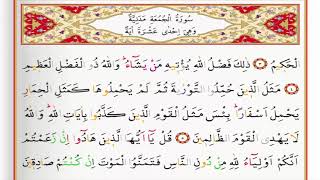 سُورَةُ الْجُمُعَةِ مَدَنِيَّةٌ
وَهِيَ اِحْدٰى عَشَرَةَ اٰيَةً
الْحَكِيمُ ذٰلِكَ فَضْلُ اللّٰهِ يُؤْتِيهِ مَنْ يَشَٓاءُ وَاللّٰهُ ذُو الْفَضْلِ الْعَظِيمِ
مَثَلُ الَّذِينَ حُمِّلُوا التَّوْرٰيةَ ثُمَّ لَمْ يَحْمِلُوهَا كَمَثَلِ الْحِمَارِ
يَحْمِلُ اَسْفَارًا بِئْسَ مَثَلُ الْقَوْمِ الَّذِينَ كَذَّبُوا بِاٰيَاتِ اللّٰهِ وَاللّٰهُ
لَا يَهْدِي الْقَوْمَ الظَّالِمِينَ قُلْ يَٓا اَيُّهَا الَّذِينَ هَادُٓوا اِنْ زَعَمْتُمْ
اَنَّكُمْ اَوْلِيَٓاءُ لِلّٰهِ مِنْ دُونِ النَّاسِ فَتَمَنَّوُا الْمَوْتَ اِنْ كُنْتُمْ صَادِقِينَ